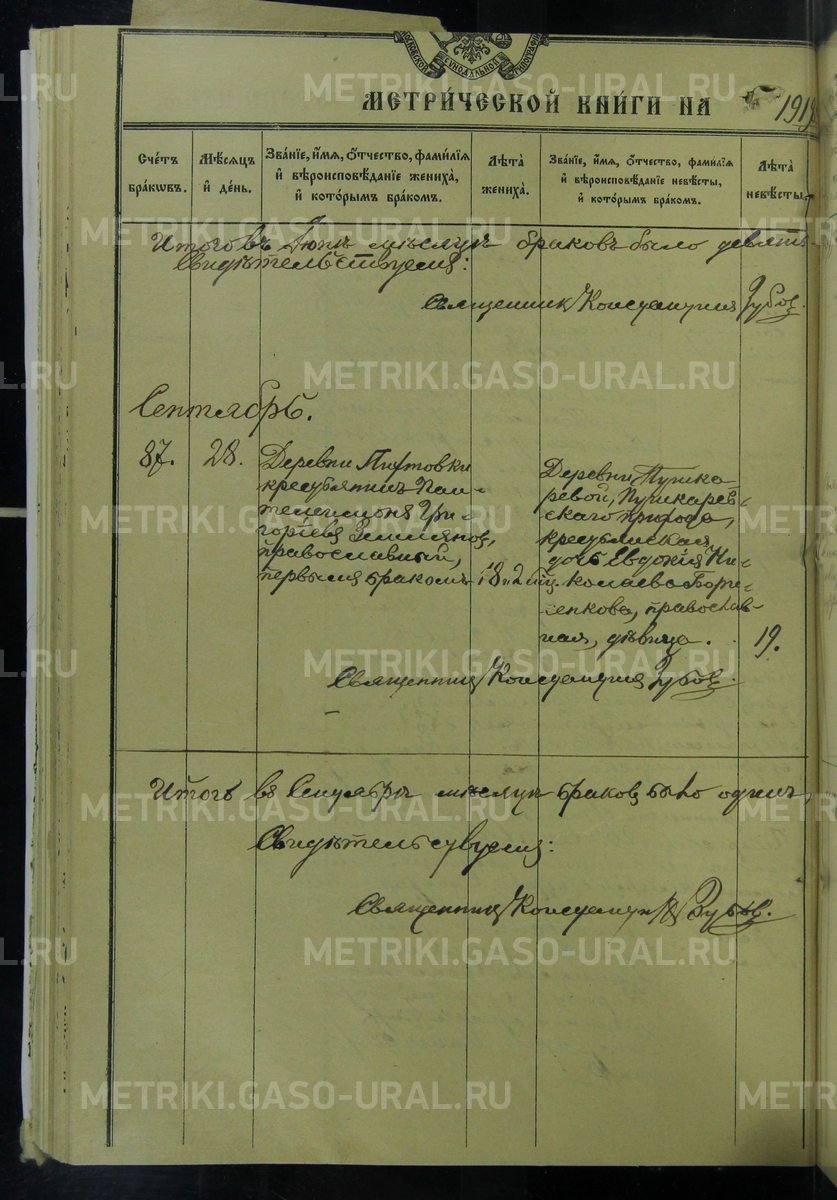 МОСКОВСКОЙ СѴНОДАЛЬНОЙ ТИПОГРАФІИ
МЕТРИ́ЧЕСКОЙ КНИ́ГИ НА 1919
Сче́тъ бра́кѡвъ.
Мѣ́сяцъ и҆ де́нь.
Зва́нїе, и҆́мѧ, ѻ҆́тчество, фами́лїѧ и҆ вѣроисповѣ́данїе жениха̀, и҆ кото́рымъ бра́комъ.
Лѣ́та жениха̀.
Зва́нїе, и҆́мѧ, ѻ҆́тчество, фами́лїѧ и҆ вѣроисповѣ́данїе невѣ́сты, и҆ кото́рымъ бра́комъ.
Лѣ́та невѣ́сты.
Итого въ мѣсяцѣ браковъ было девять
Свидѣтельствуемъ:
Священникъ Константинъ Зубов.
Сентябрь.
87.
28.
Деревни Пихтовки
крестьянинъ Пан-
телеимонъ Гри-
горіевъ Земляновъ,
православный,
первымъ бракомъ
18 и 2 мц.
Деревни Пушка
ревой, Пушкарев-
скаго прихода,
крестьянская
дочь Евдокія Ни-
колаева
православ-
ная, дѣвица.
19.
Священникъ Константинъ Зубов.
Итого въ Сентябрѣ мѣсяцѣ браковъ было одинъ,
Свидѣтельствуемъ:
Священникъ Константинъ Зубов.
METRIKI.GASO-URAL.RU